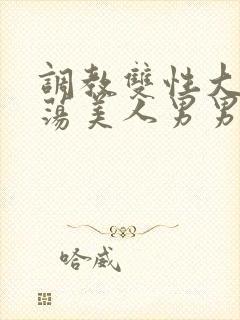 調教雙性大
蕩美人男男
哈威